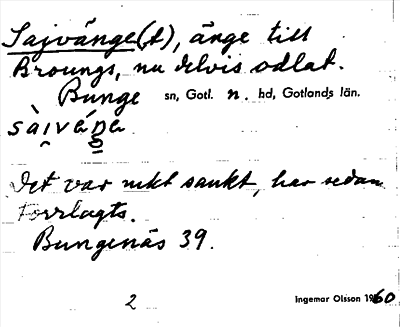 Sajvänge(t), änge till
Broungs, nu delvis odlat.
Bunge sn, Gotl. n. hd, Gotlands län.
Det var mkt sankt, har sedan
torrlagts.
Bungenäs 39.
2
Ingemar Olsson 1960